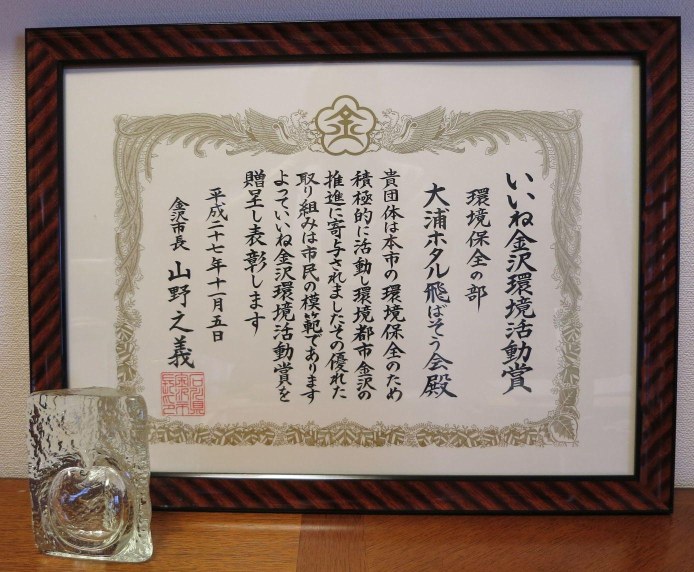 金
いいね金沢環境活動賞
環境保全の部
大浦ホタル飛ばそう会殿
貴団体は本市の環境保全のため
積極的に活動し環境都市金沢の
推進に寄与されましたその優れた
取り組みは市民の模範であります
よっていいね金沢環境活動賞を
贈呈し表彰します
平成二十七年十一月五日
金沢市長 山野之義